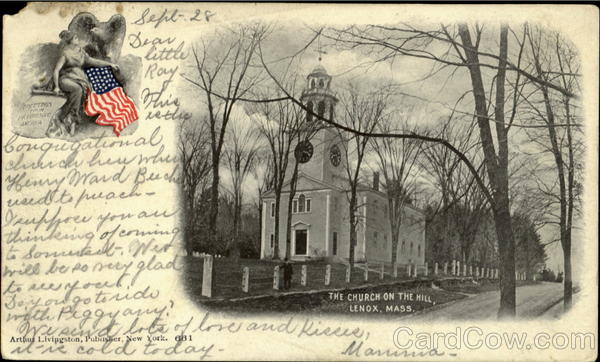 Sept- 28
Dear
little
Ray
This
is the
Congregational
church here where
Henry Ward Beech
used to preach-
I suppose you are
thinking of coming
to Somerset. We
will be so very glad
to see you.
Do you go to ride
with Peggy any?
We send lots of love and kisses,
it is cold today- Mamma-
THE CHURCH ON THE HILL,
LENOX, MASS.
Arthur Livingston, Publisher, New York. 631
CardCow.com